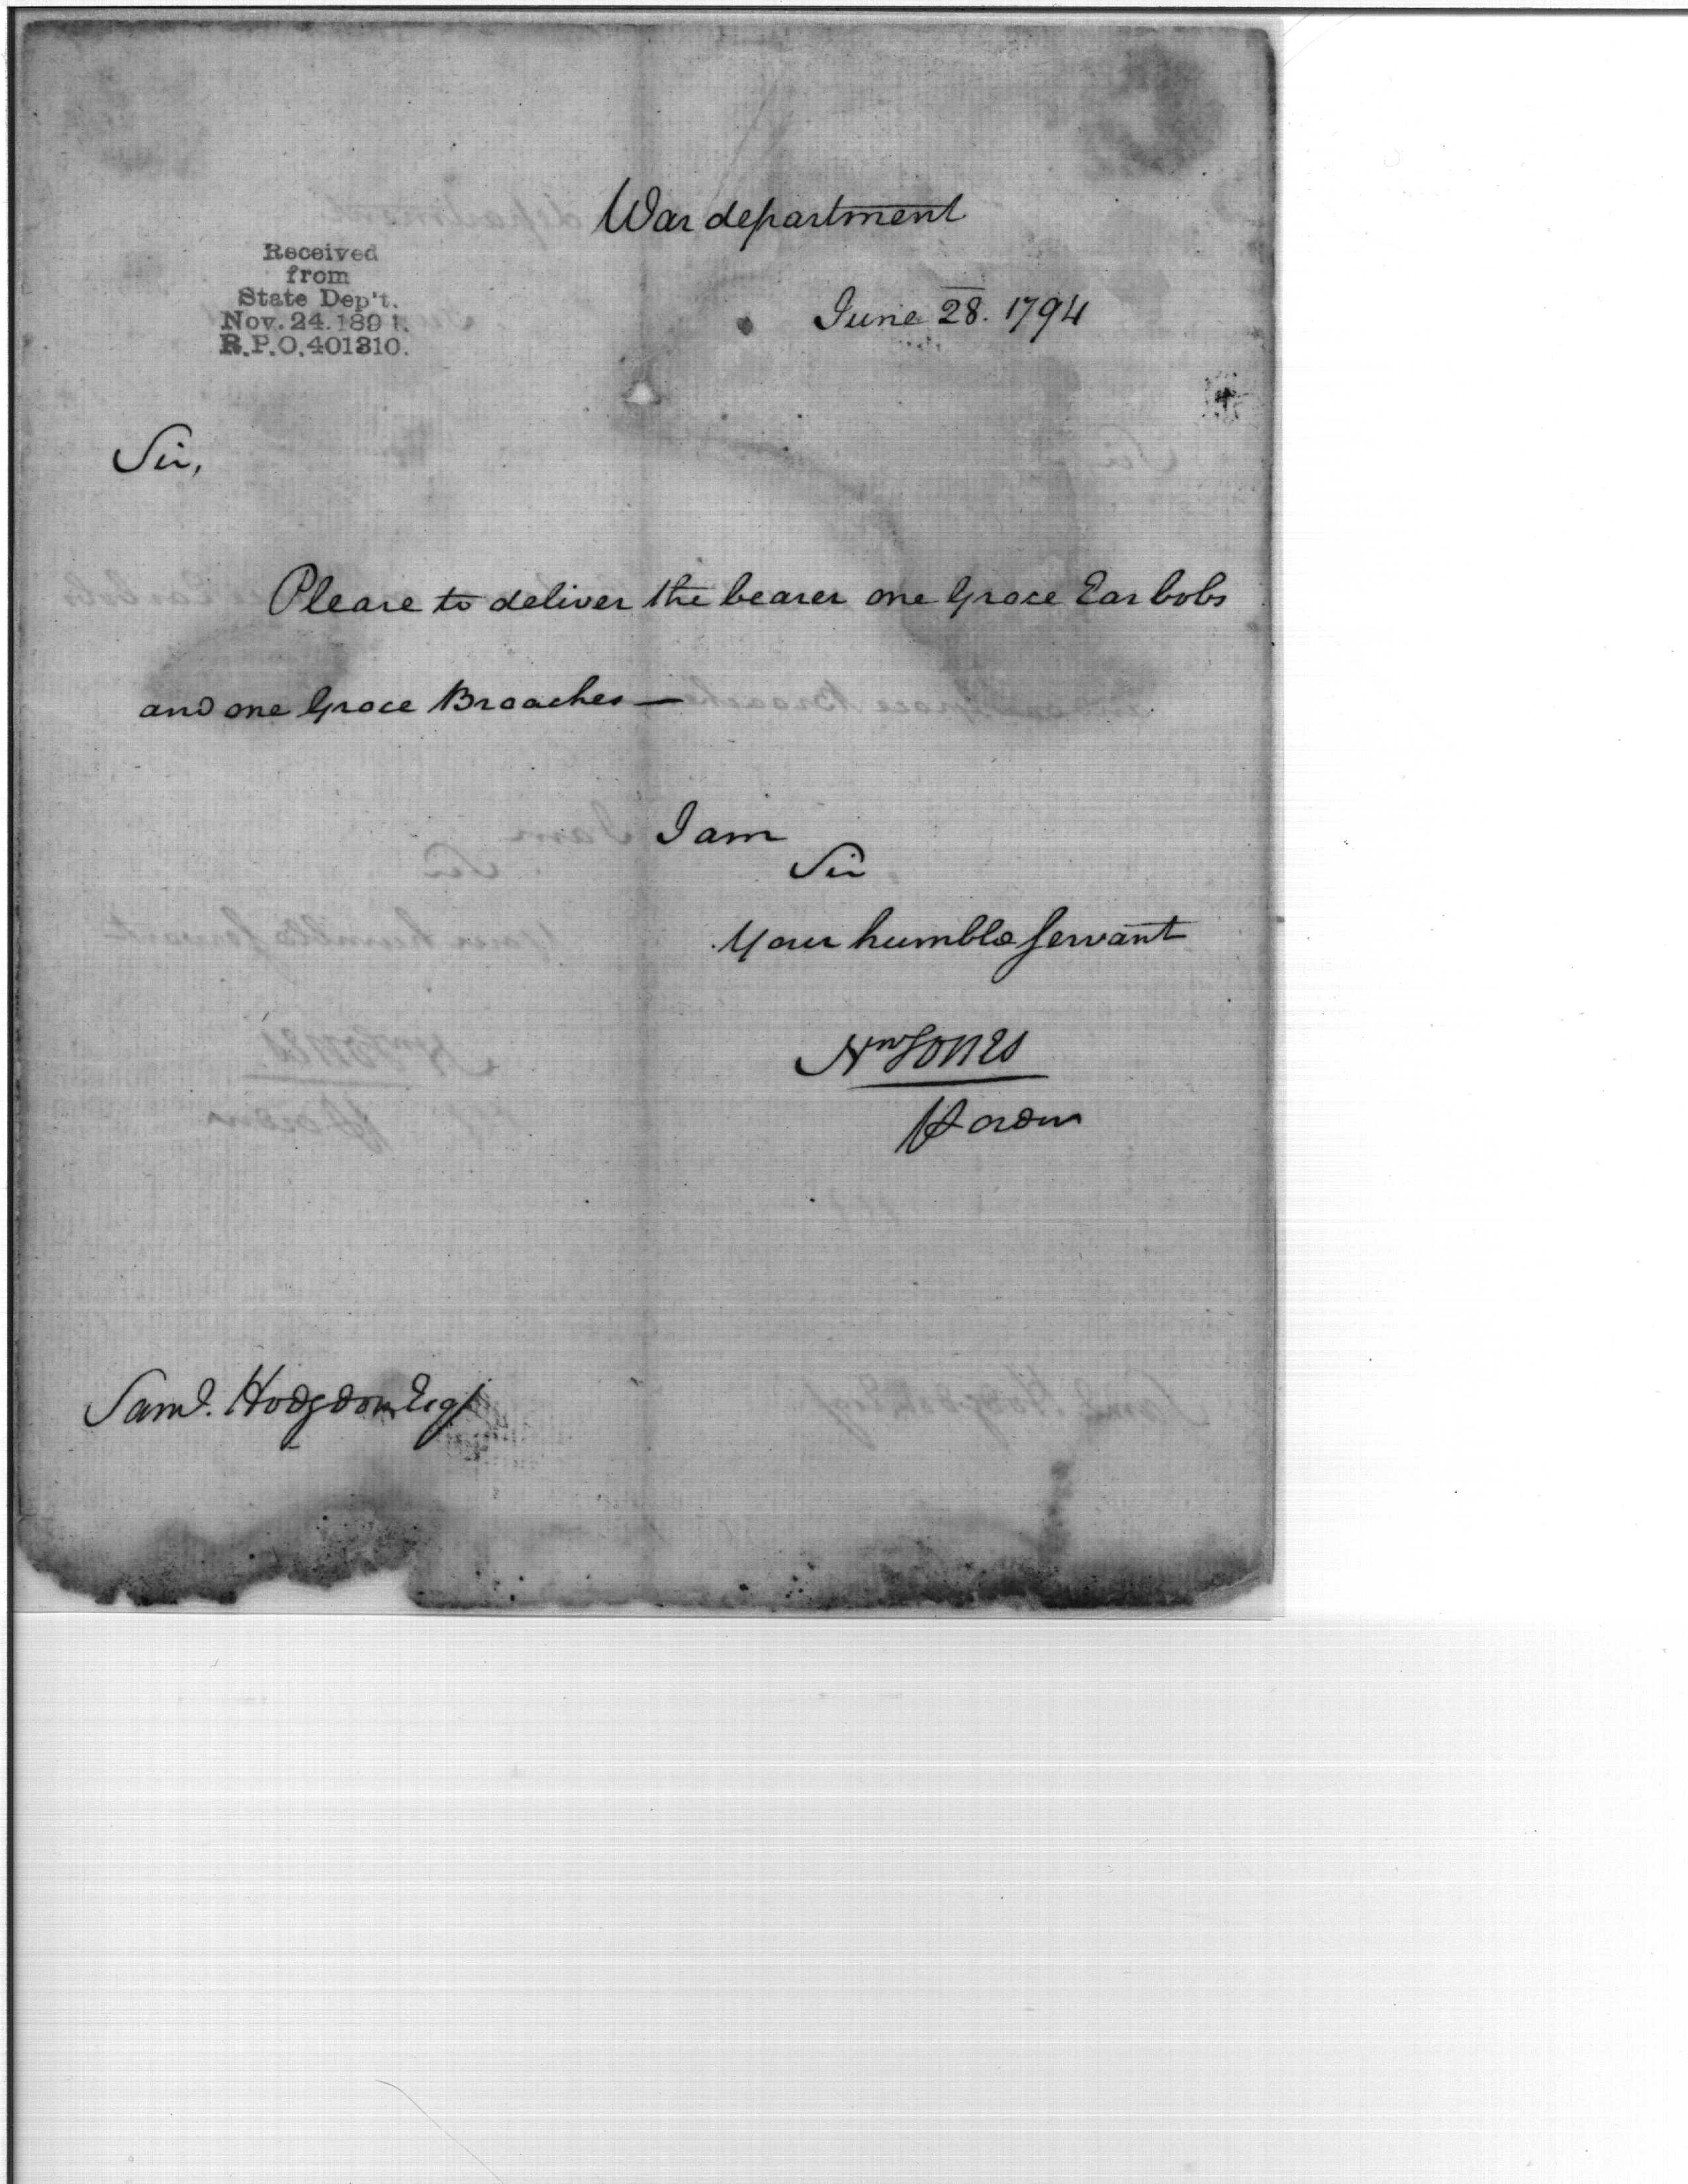 War department
June 28. 1794
Received
from
State Dep't.
Nov. 24. 1891.
R.P.O. 401310.
Sir,
Please to deliver the bearer one Groce Ear bobs
and one Groce Broaches —
I am
Sir
Your humble servant
Jones
Saml. Hodgdon Esqr